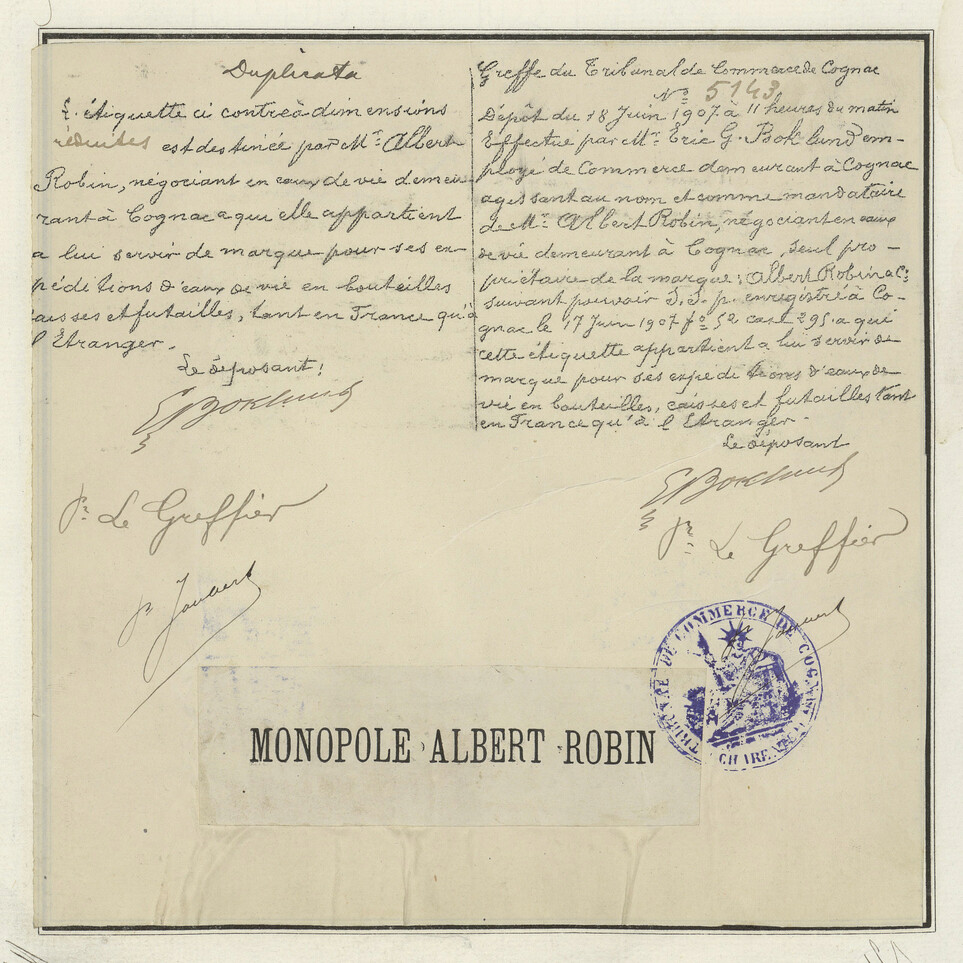 Duplicata
L'étiquette ci contre à dimensions
réduites est destinée par Mr. Albert
Robin, négociant en eaux de vie demeu
rant à Cognac a qui elle appartient
a lui servir de marque pour ses ex-
péditions d'eaux de vie en bouteilles
caisses et futailles, tant en France qu'à
l'Étranger.
Le déposant:
Pr. Le Greffier
Greffe du Tribunal de Commerce de Cognac
No 5143
Dépôt du 18 Juin 1907 à 11 heures du matin
Effectué par Mr. Eric G. Boklund em-
ployé de Commerce demeurant à Cognac
agissant au nom et comme mandataire
de Mr. Albert Robin, négociant en eaux
de vie demeurant à Cognac, seul pro-
priétaire de la marque: Albert Robin & Co.
suivant pouvoir S.S.p. enregistré à Co-
gnac le 17 Juin 1907 fo 52 case 295. a qui
cette étiquette appartient a lui servir de
marque pour ses expéditions d'eaux de
vie en bouteilles, caisses et futailles tant
en France qu'à l'Etranger.
Le déposant
EBoklund
Pr. Le Greffier
TRIBUNAL DE COMMERCE DE COGNAC
CHARENTE
MONOPOLE ALBERT ROBIN